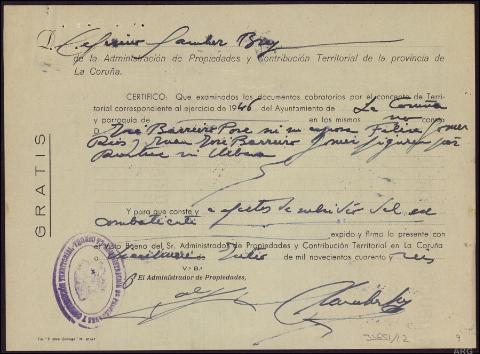 D. Ceferino Sanchez Bry
de la Administración de Propiedades y Contribución Territorial de la provincia de
La Coruña.
CERTIFICO: Que examinados los documentos cobratorios por el concepto de Terri-
torial correspondiente al ejercicio de 1946 del Ayuntamiento de La Coruña
y parroquia de en los mismos no consta
D. José Barreiro Pose ni su esposa Felisa Gomez
Rios y Juan José Barreiro Gomez figuren por
Rustica ni Urbana
GRATIS
Y para que conste y a efectos de subsidio del ex
combatiente expido y firmo la presente con
el Visto Bueno del Sr. Administrador de Propiedades y Contribución Territorial en La Coruña
Julio de mil novecientos cuarenta y seis
V.º B.º
El Administrador de Propiedades,
33851/12
9
ARG